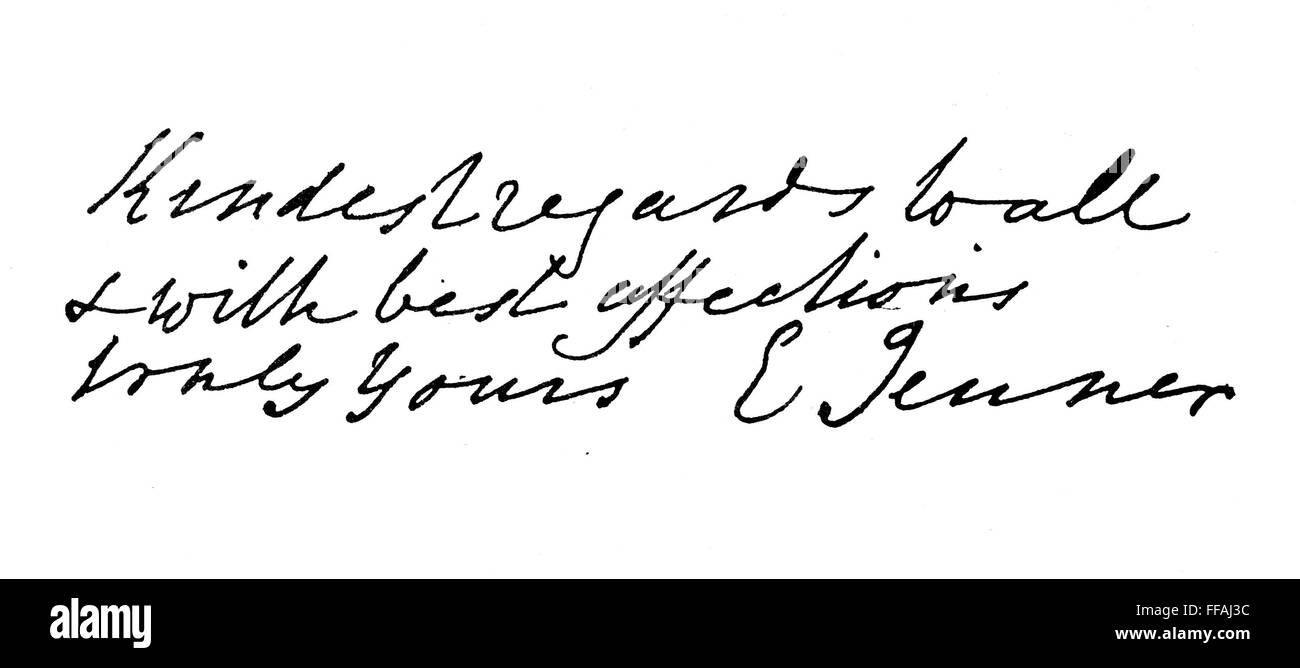 Kindest regards to all
& with best affections
truly yours E Jenner
alamy stock photo
a alamy
a alamy
a
a
Image ID: FFAJ3C
www.alamy.com